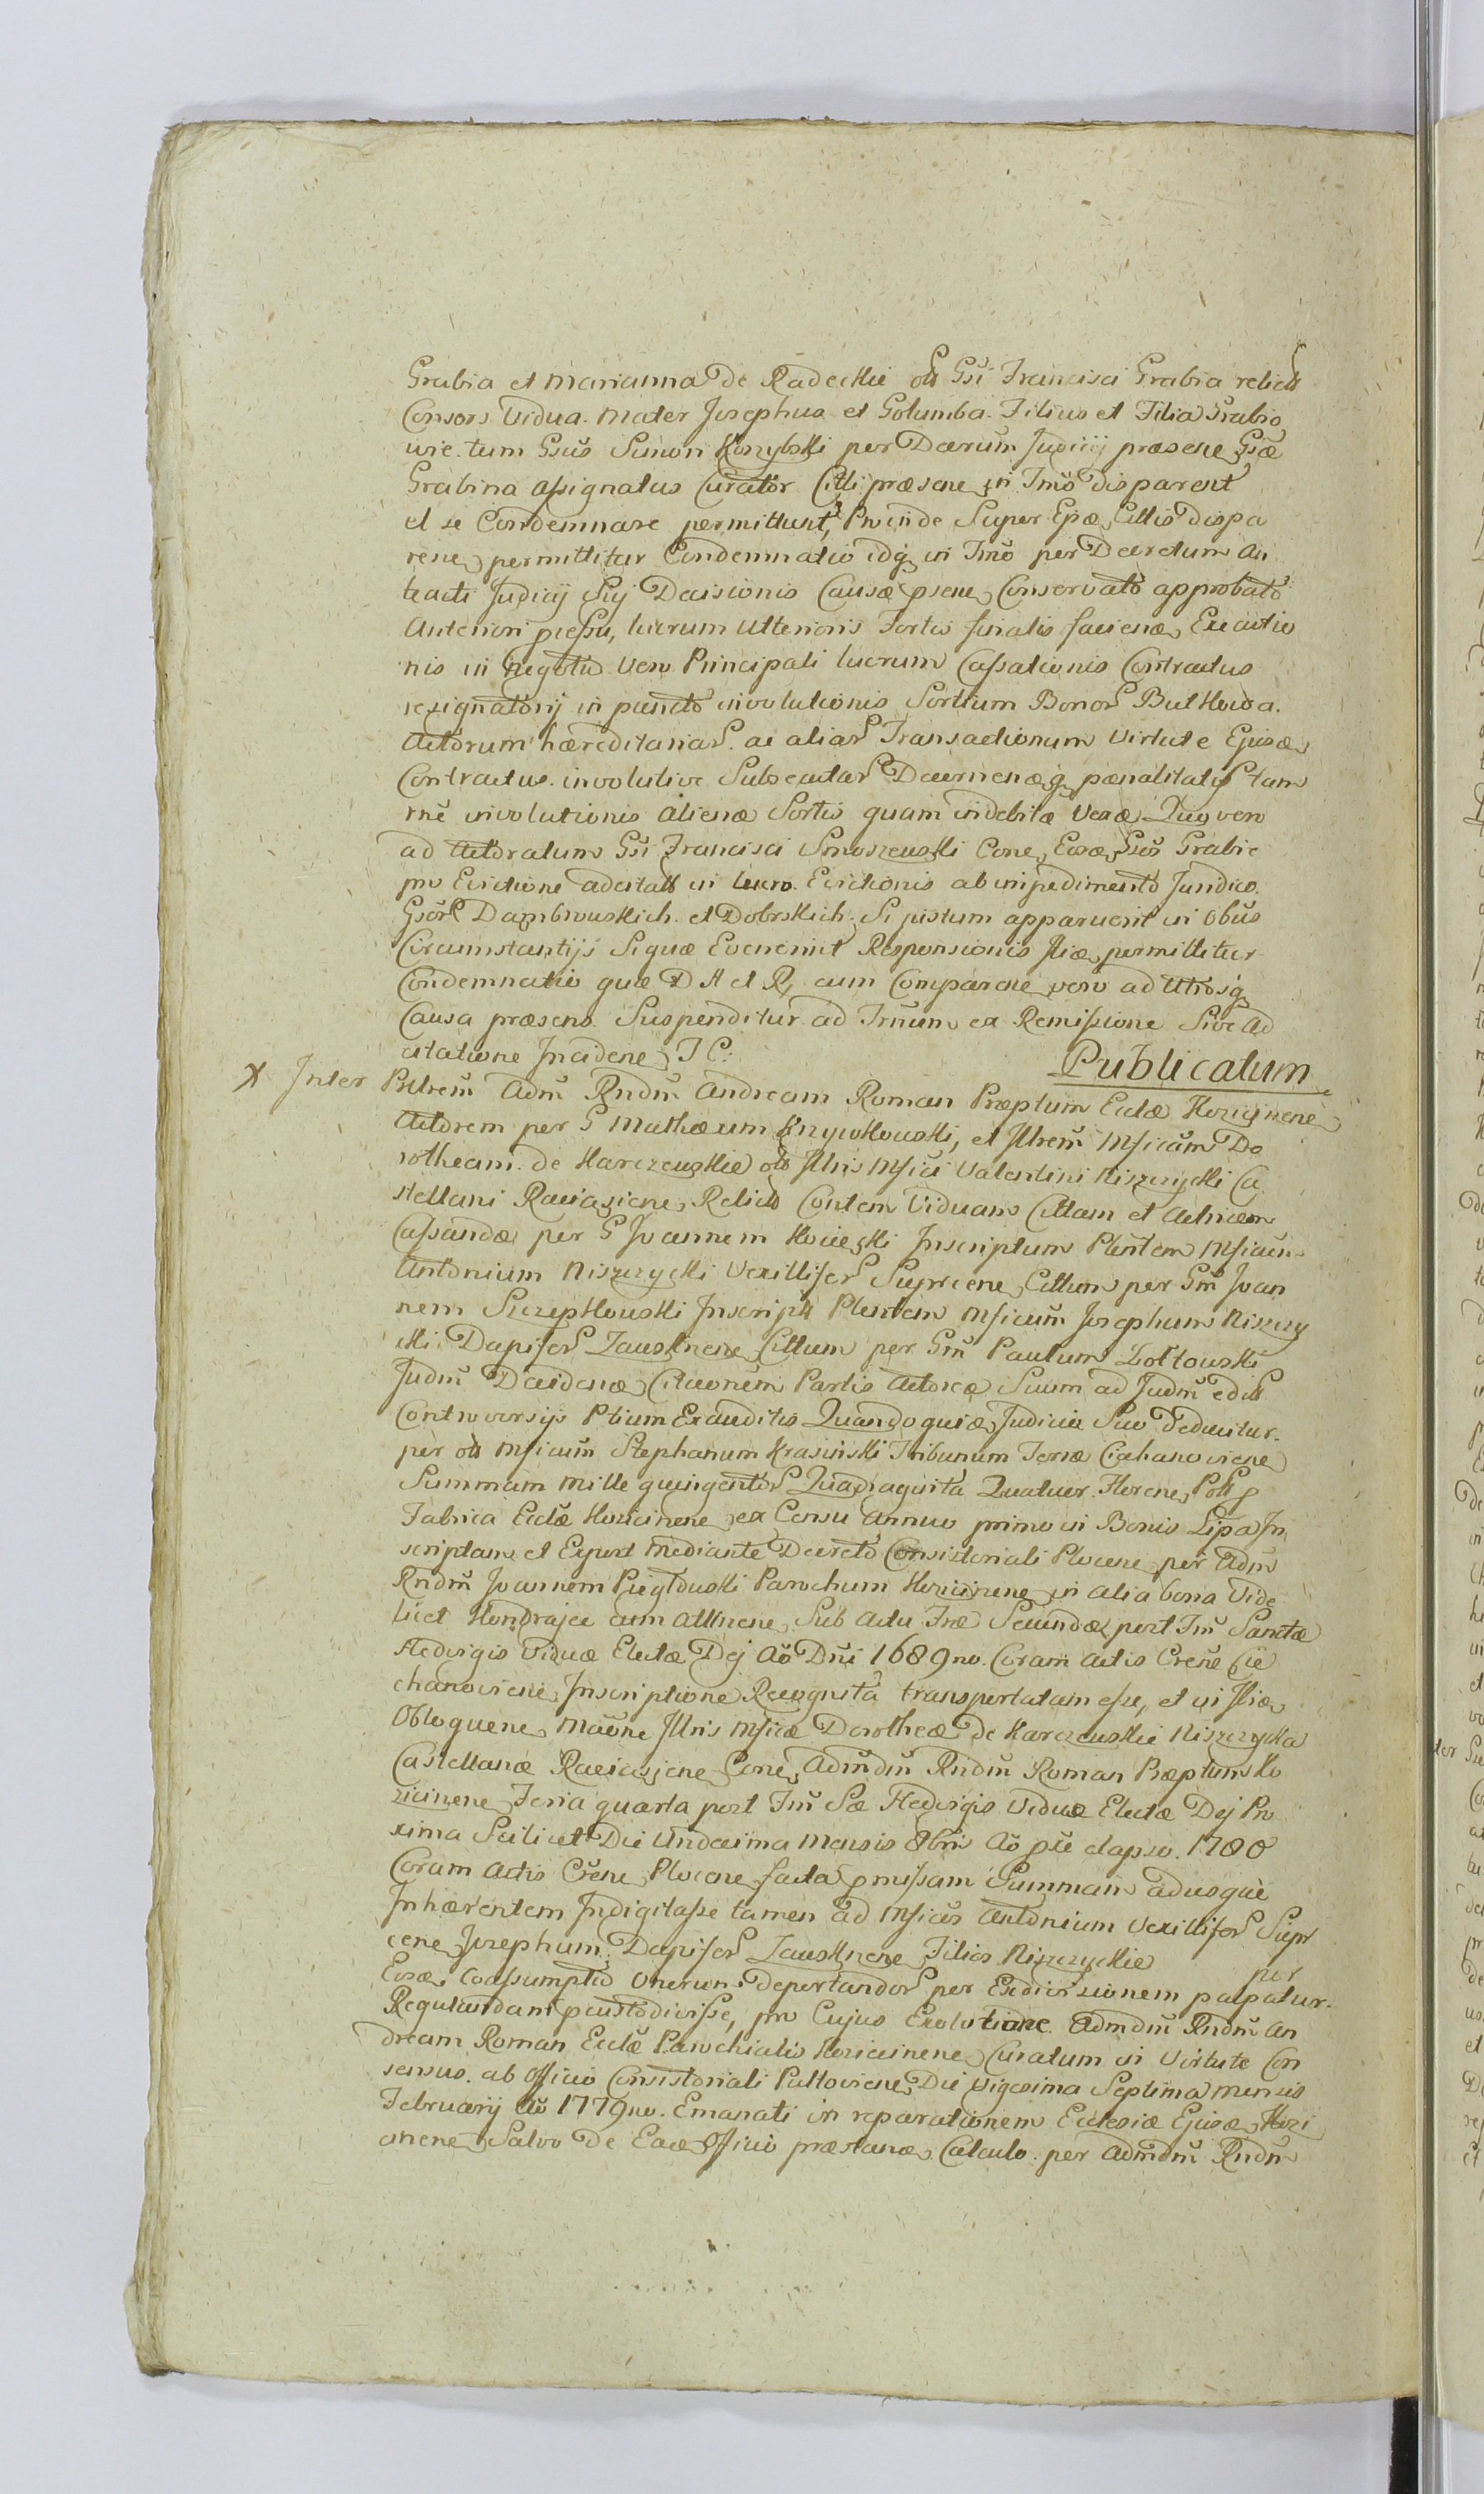 Grabia et Marianna De Radeckie olł Gsi Francisci Grabia relictł
Consors Vidua. Mater Josephus et Columba. Filius et Filia Grabio
wie. tum Gsus Simon Konylski per Dcerum Judicij præsene Gsæ
Grabina assignatus Curator Citti præsene in Tmo disparent
et se Condemnare permittunt, Proinde Super Epæ, Cittis dispa
rene, permittitur Condemnatio idq in Tmo per Decretum an
teacti Judicij Sij Decisionis Causæ psene, Conservato approbato
Anteriori pressu, lucrum Ulterioris Fortis finalis faciende, Exactio
nis in Negotio Vero Principali lucrum Cassationis Contractus
resignatorij in puncto involutionis Sortium Bonor Buthowa.
Actorum hæreditariar. ac aliar Transactionum Virtute Ejusde
Contractus. involutive Subsecutar Decernenæq pænalitatis tam
rne involutionis alienæ Sortis quam indebitæ Vexæ, Quo vero
ad Actoratum Gsi Francisci Smoszewski Cone, Eosæ, Gsos Grabie
pro Evictione adcitatł in lucro. Evictionis ab impedimento Juridico.
Gsor Dambrowskich. et Dobrskich. Si istum apparuerit in Obus
Circumstantijs Si quæ Evenerint Responsionis Jliæ, permittitur
Condemnatio quæ D A et R, cum Comparene vero ad Utrosq
Causa præsens. Suspenditur ad Trnum ex Remissione Sive ad
citatione Incidene, J C: Publicatum
X Inter Pltrem Adm Rndm Andream Roman Præptum Eclæ Kozicinene
Actorem per G Mathæum Knywkowski, et Jllrem Mficam Do
rotheam. de Karczewskie olł Jllris Mfici Valentini Niszczycki Ca
stellani Raciąziene, Relictł Contem Viduam Cittam et Actricem
Cassandæ per G Joannem Kowieski Inscriptum Plentem Mficum
Antonium Niszczycki Vexillifer Sieprcene, Cittum per Gm Joan
nem Szczepkowski Inscriptł Plentem Mficum Josephum Niszczy
cki Dapifer Zawskrzene, Cittum per Gm Paulum Zoltowski
Judm Decidenæ, Citaonem Partis Actoreæ Suum ad Judm edictł
Controversijs Ptium Exauditis Quandoquidæ, Judicio Suo deducitur.
per olł Mficum Stephanum Krasinski Tribunum Terræ Ciechanoviene
Summam Mille quingentor Quadraginta Quatuor Florene, Polł p
Fabrica Eclæ Kozicinene ex Censu Annuo primo in Bonis Lipa In
scriptam et Expost Mediante Decreto Consistoriali Plocene per Adm
Rndm Joannem Pięglowski Parochum Kozicinene in alia bona Vide
licet Kondrajce cum Attinene, Sub Actu Fræ Secundæ post Fm Sanctæ
Hedvigis Viduæ Electæ Dej Ao Dni 1689no. Coram Actis Crene Cie
chanoviene, Inscriptione Recognita transportatam esse, et in Jliæ,
Obloquene, Maone Jllris Mficæ Dorotheæ de Karczewskie Niszczycka
Castellanæ Raciązjene Cone, Admdm Rndm Roman Præptum Ko
zicinene, Feria quarta post Fm Sæ Hedvigis Viduæ Electæ Dej Pro
xima Scilicet Die Undecima Mensis 8bris Ao pte elapso. 1780
Coram Actis Crene Plocene facta pmissam Summam adusque
Inhærentem Indigitasse tamen ad Mficos Antonium Vexillifer Siepr
cene Josephum, Dapifer Zawskrzene, Filios Niszczyckie
per
Eosæ, Coassumptio Onerum Deportandor per Exdivisionem palpatur.
Regulandam pcustodivisse, pro Cujus Exolutione. Admdm Rndm An
dream Roman Eclæ Parochialis Kozicinene, Curatum in Virtute Con
sensus. ab Officio Consistoriali Pultoviene, Die Vigesima Septima Mensis
February Ao 1779no. Emanati in reparationem Ecclesiæ Ejusæ, Kozi
cinene, Salvo de Eaæ Officio præstanæ, Calculo. per Admdm Rndm